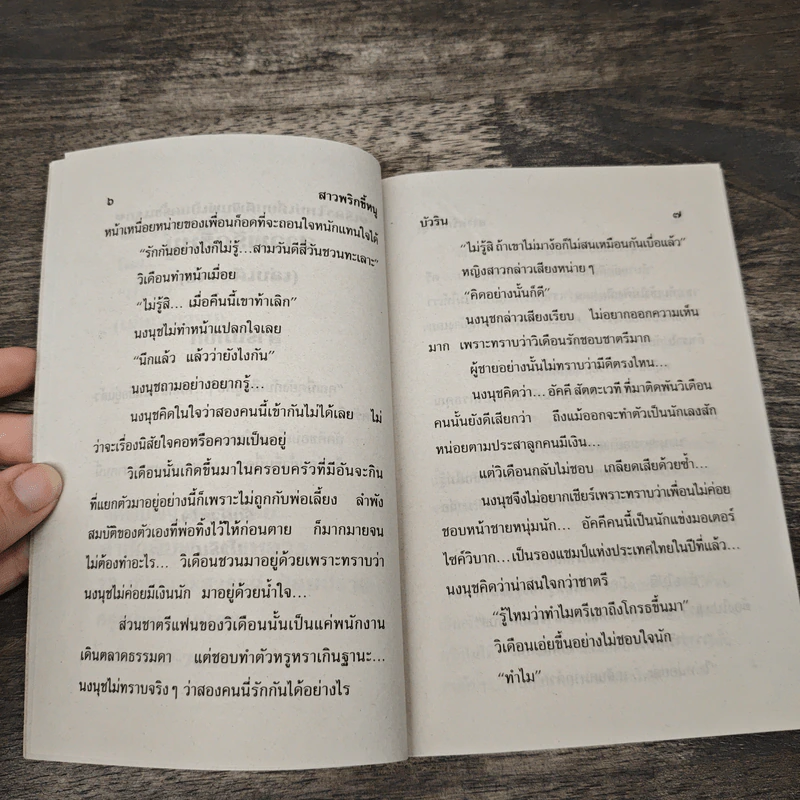 ๖
สาวพริกขี้หนู
หน้าเหนื่อยหน่ายของเพื่อนก็อดที่จะถอนใจหนักแทนใจได้
“รักกันอย่างไงก็ไม่รู้... สามวันดีสี่วันชวนทะเลาะ”
วิเดือนทำหน้าเมื่อย
“ไม่รู้สิ... เมื่อคืนนี้เขาท้าเลิก”
นงนุชไม่ทำหน้าแปลกใจเลย
“นึกแล้ว แล้วว่ายังไงกัน”
นงนุชถามอย่างอยากรู้...
นงนุชคิดในใจว่าสองคนนี้เข้ากันไม่ได้เลย ไม่
ว่าจะเรื่องนิสัยใจคอหรือความเป็นอยู่
วิเดือนนั้นเกิดขึ้นมาในครอบครัวที่มีอันจะกิน
ที่แยกตัวมาอยู่อย่างนี้ก็เพราะไม่ถูกกับพ่อเลี้ยง ลำพัง
สมบัติของตัวเองที่พ่อทิ้งไว้ให้ก่อนตาย ก็มากมายจน
ไม่ต้องทำอะไร... วิเดือนชวนมาอยู่ด้วยเพราะทราบว่า
นงนุชไม่ค่อยมีเงินนัก มาอยู่ด้วยน้ำใจ...
ส่วนชาตรีแฟนของวิเดือนนั้นเป็นแค่พนักงาน
เดินตลาดธรรมดา แต่ชอบทำตัวหรูหราเกินฐานะ...
นงนุชไม่ทราบจริง ๆ ว่าสองคนนี้รักกันได้อย่างไร
บัวริน
๗
“ไม่รู้สิ ถ้าเขาไม่มาง้อก็ไม่สนเหมือนกันเบื่อแล้ว”
หญิงสาวกล่าวเสียงหน่าย ๆ
“คิดอย่างนั้นก็ดี”
นงนุชกล่าวเสียงเรียบ ไม่อยากออกความเห็น
มาก เพราะทราบว่าวิเดือนรักชอบชาตรีมาก
ผู้ชายอย่างนั้นไม่ทราบว่ามีดีตรงไหน...
นงนุชคิดว่า... อัคคี สัตตะเวที ที่มาติดพันวิเดือน
คนนั้นยังดีเสียกว่า ถึงแม้ออกจะทำตัวเป็นนักเลงสัก
หน่อยตามประสาลูกคนมีเงิน...
แต่วิเดือนกลับไม่ชอบ เกลียดเสียด้วยซ้ำ...
นงนุชจึงไม่อยากเชียร์เพราะทราบว่าเพื่อนไม่ค่อย
ชอบหน้าชายหนุ่มนัก... อัคคีคนนี้เป็นนักแข่งมอเตอร์
ไซค์วิบาก... เป็นรองแชมป์แห่งประเทศไทยในปีที่แล้ว...
นงนุชคิดว่าน่าสนใจกว่าชาตรี
“รู้ไหมว่าทำไมตรีเขาถึงโกรธขึ้นมา”
วิเดือนเอ่ยขึ้นอย่างไม่ชอบใจนัก
“ทำไม”